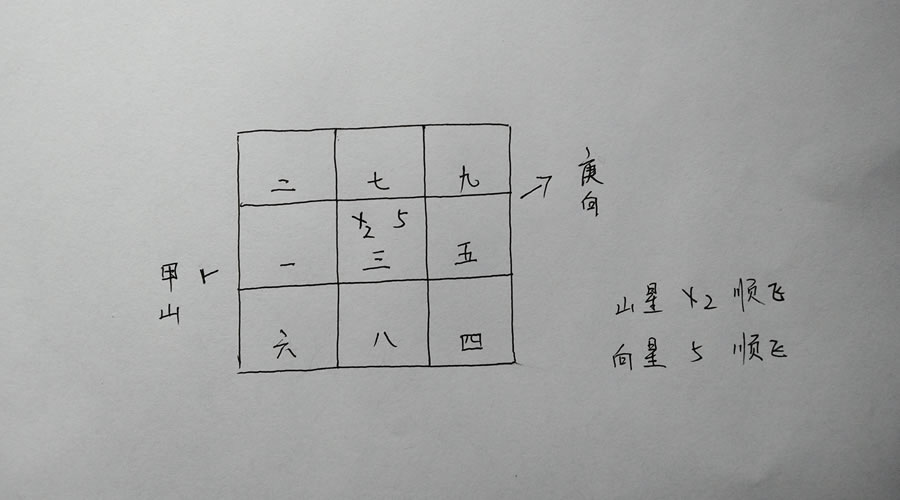 二 七 九
x2 5
一 三 五
六 八 四
甲山
庚向
山星 x2 顺飞
向星 5 顺飞